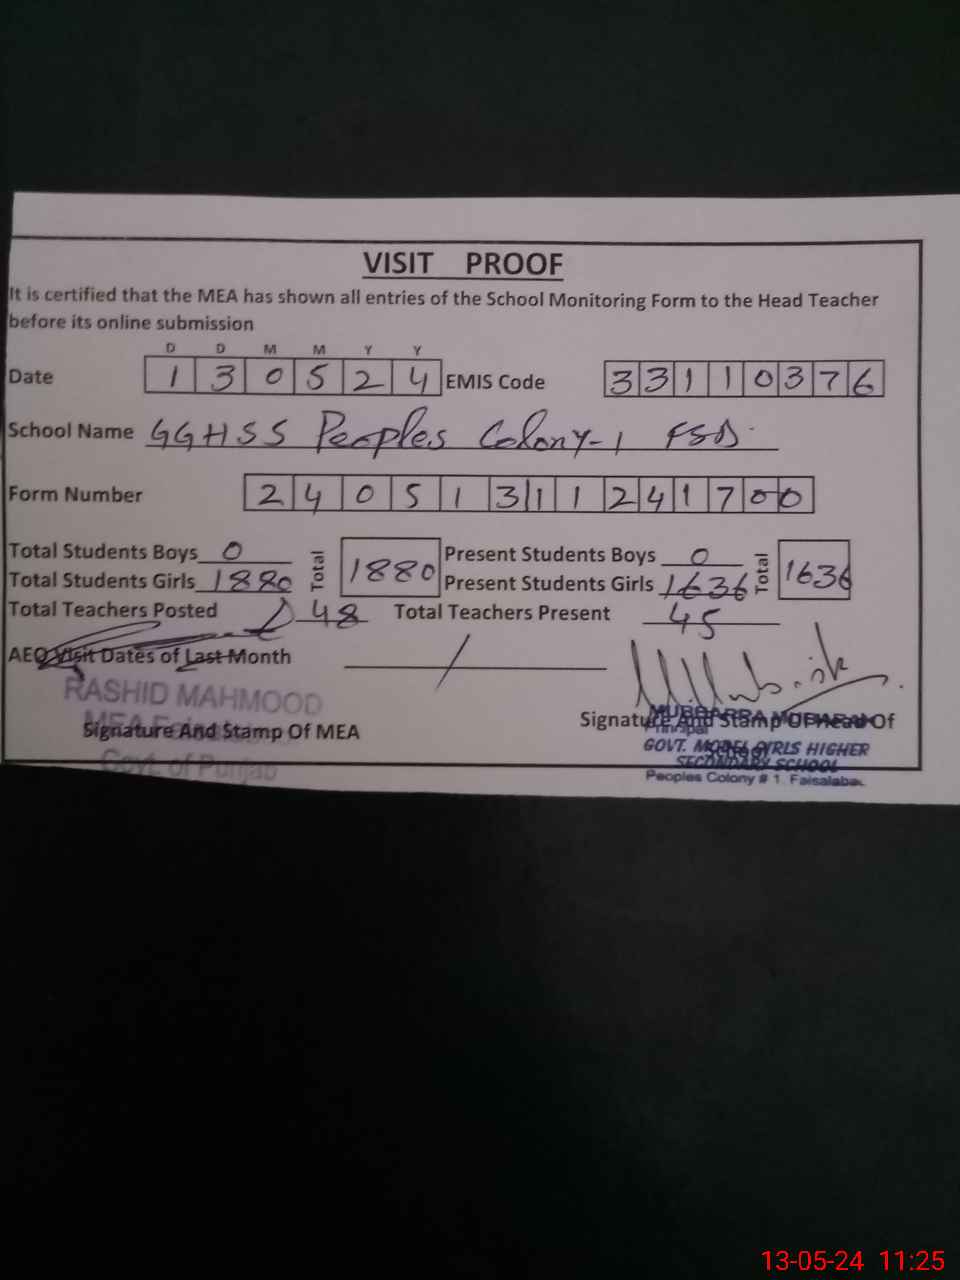 VISIT PROOF
It is certified that the MEA has shown all entries of the School Monitoring Form to the Head Teacher
before its online submission
D D M M Y Y
Date 1 3 0 5 2 4 EMIS Code 3 3 1 1 0 3 7 6
School Name GGHSS Peoples Colony-1 FSD
Form Number 2 4 0 5 1 3 1 1 2 4 1 7 0 0
Total Students Boys 0 Total 1880 Present Students Boys 0 Total 1636
Total Students Girls 1880 Present Students Girls 1636
Total Teachers Posted 48 Total Teachers Present 45
AEO Visit Dates of Last Month /
RASHID MAHMOOD
MEA
Signature And Stamp Of MEA
Govt. of Punjab
Signature And Stamp Of Head Of
School
Principal
GOVT. MODEL GIRLS HIGHER
SECONDARY SCHOOL
Peoples Colony # 1. Faisalabad
13-05-24 11:25